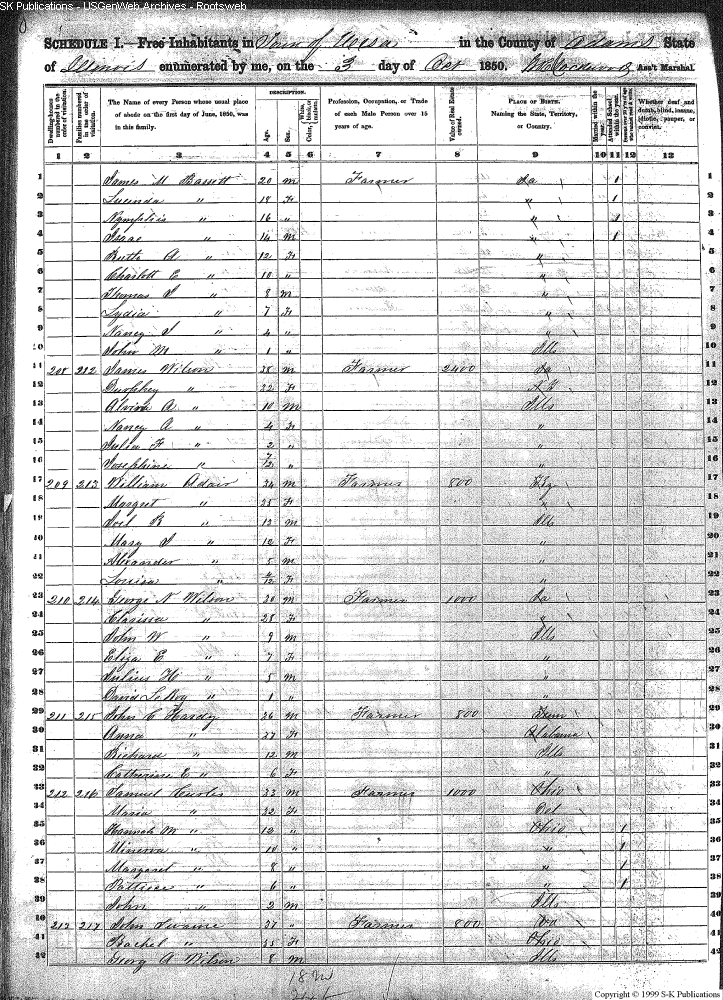 SK Publications - USGenWeb Archives - Rootsweb
SCHEDULE I.—Free Inhabitants in Town of Ursa in the County of Adams State
of Illinois enumerated by me, on the 3 day of Oct 1850. Ass't Marshal.
Dwelling-houses numbered in the order of visitation.
Families numbered in the order of visitation.
The Name of every Person whose usual place of abode on the first day of June, 1850, was in this family.
DESCRIPTION.
Age.
Sex.
Color, White, black, or mulatto.
Profession, Occupation, or Trade of each Male Person over 15 years of age.
Value of Real Estate owned.
PLACE OF BIRTH. Naming the State, Territory, or Country.
Married within the year.
Attended School within the year.
Whether deaf and dumb, blind, insane, idiotic, pauper, or convict.
1 2 3 4 5 6 7 8 9 10 11 12 13
1 James M Bassett 20 M Farmer Ia 1 1
2 Lucinda " 18 F " 1 2
3 " 16 " " 1 3
4 Isaac " 14 M " 1 4
5 Ruth A " 12 F " 5
6 Charlott E " 10 " " 6
7 Thomas J " 8 M " 7
8 Lydia " 7 F " 8
9 Nancy J " 4 " " 9
10 John M " 1 " Ills 10
11 208 212 James Wilson 38 M Farmer 2400 Ia 11
12 " 32 F Ky 12
13 Alvira A " 10 M Ills 13
14 Nancy A " 4 F " 14
15 Julia F " 2 " " 15
16 Josephine " 7/12 " " 16
17 209 213 William Adair 34 M Farmer 800 Ky 17
18 Margret " 35 F " 18
19 R " 13 M Ills 19
20 Mary J " 12 F " 20
21 Alexander " 5 M " 21
22 Louisa " /12 F " 22
23 210 214 George N Wilson 30 M Farmer 1000 Ia 23
24 Clarissa " 28 F " 24
25 John W " 9 M Ills 25
26 Eliza E " 7 F " 26
27 Julius H " 5 M " 27
28 David LeRoy " 1 " " 28
29 211 215 John C Hardy 36 M Farmer 800 Tenn 29
30 Anna " 37 F Alabama 30
31 Richard " 12 M Ills 31
32 Catherine E " 6 F " 32
33 212 216 Samuel Curlis 33 M Farmer 1000 Ohio 33
34 Maria " 32 F Del 34
35 Hannah M " 12 " Ohio 1 35
36 Minerva " 10 " " 1 36
37 Margaret " 8 " " 1 37
38 " 6 " " 1 38
39 John " 2 M Ills 39
40 213 217 John 37 " Farmer 800 40
41 Rachel " 35 F Ohio 41
42 Georg A Wilson 8 M Ills 42
18 M
Copyright © 1999 S-K Publications